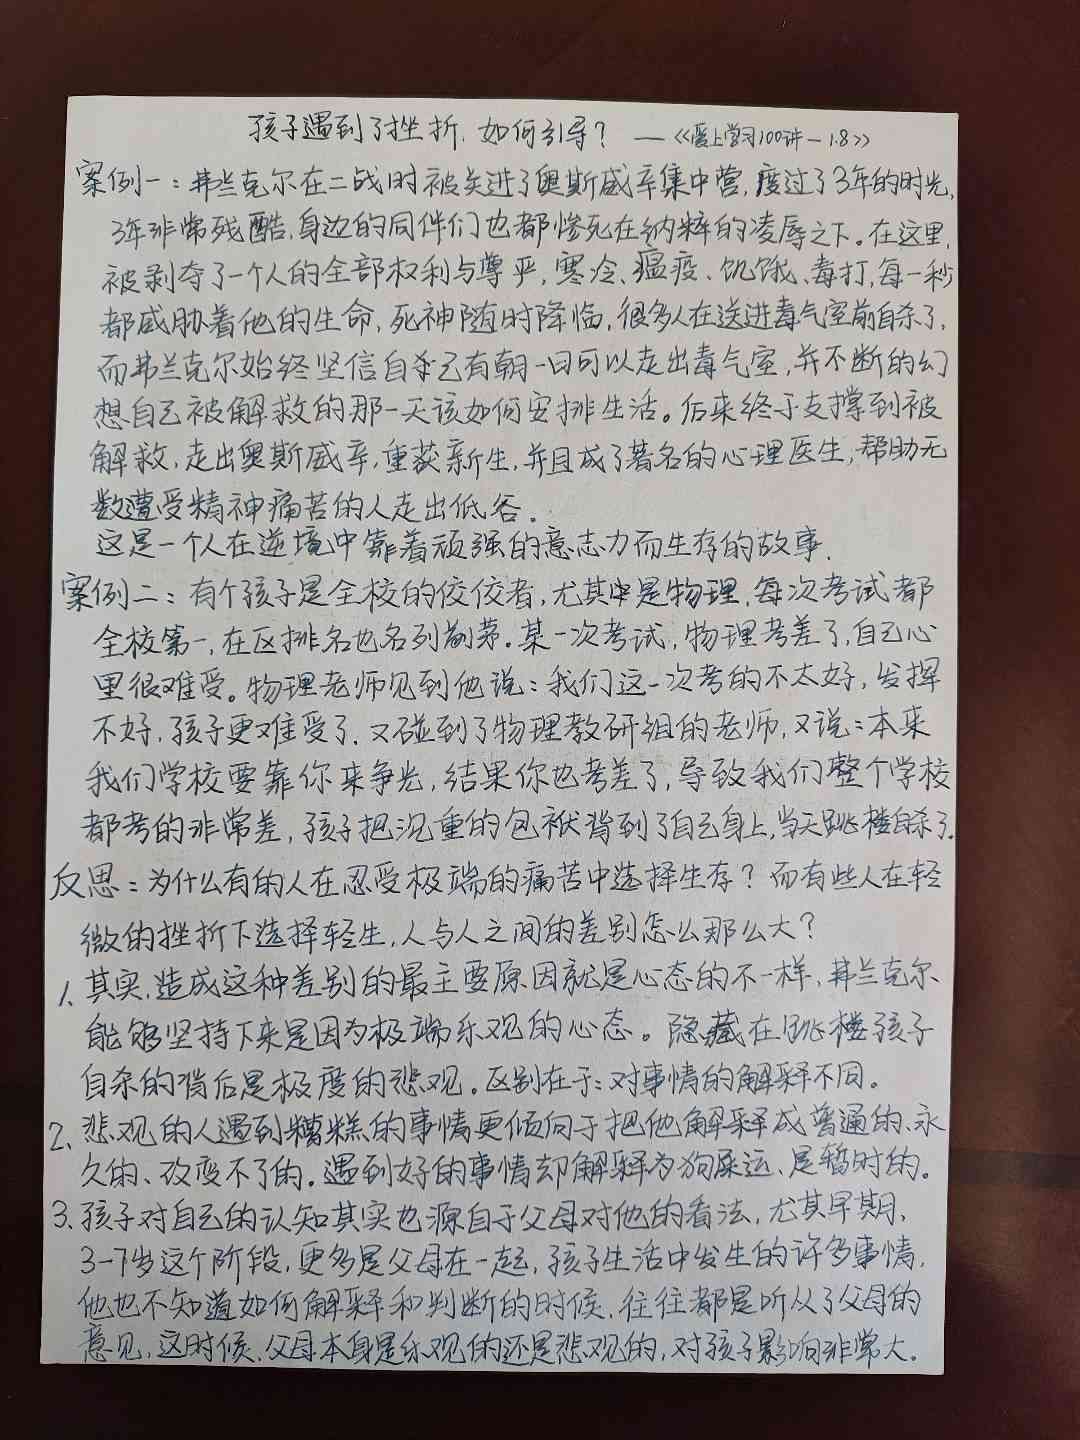 孩子遇到了挫折,如何引导? —《爱上学习100讲—1.8》
案例一:弗兰克尔在二战时被关进了奥斯威辛集中营,度过了3年的时光,
3年非常残酷,身边的同伴们也都惨死在纳粹的凌辱之下。在这里,
被剥夺了一个人的全部权利与尊严,寒冷、瘟疫、饥饿、毒打,每一秒
都威胁着他的生命,死神随时降临,很多人在送进毒气室前自杀了,
而弗兰克尔始终坚信自己有朝一日可以走出毒气室,并不断的幻
想自己被解救的那一天该如何安排生活。后来终于支撑到被
解救,走出奥斯威辛,重获新生,并且成了著名的心理医生,帮助无
数遭受精神痛苦的人走出低谷.
这是一个人在逆境中靠着顽强的意志力而生存的故事.
案例二:有个孩子是全校的佼佼者,尤其中是物理,每次考试都
全校第一,在区排名也名列前茅。某一次考试,物理考差了,自己心
里很难受。物理老师见到他说:我们这一次考的不太好,发挥
不好,孩子更难受了.又碰到了物理教研组的老师,又说:本来
我们学校要靠你来争光,结果你也考差了,导致我们整个学校
都考的非常差,孩子把沉重的包袱背到了自己身上,当天跳楼自杀了.
反思:为什么有的人在忍受极端的痛苦中选择生存?而有些人在轻
微的挫折下选择轻生,人与人之间的差别怎么那么大?
1、其实,造成这种差别的最主要原因就是心态的不一样,弗兰克尔
能够坚持下来是因为极端乐观的心态。隐藏在跳楼孩子
自杀的背后是极度的悲观。区别在于:对事情的解释不同。
2、悲观的人遇到糟糕的事情更倾向于把他解释成普遍的、永
久的、改变不了的。遇到好的事情却解释为狗屎运、是暂时的。
3、孩子对自己的认知其实也源自于父母对他的看法,尤其早期,
3-7岁这个阶段,更多是父母在一起,孩子生活中发生的许多事情,
他也不知道如何解释和判断的时候,往往都是听从了父母的
意见,这时候,父母本身是乐观的还是悲观的,对孩子影响非常大。